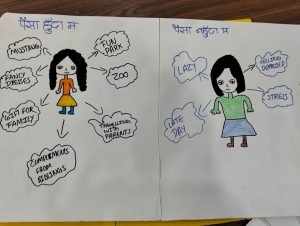 पैसा हुँदा म
MUSTANG
FUN
PARK
FANCY
DRESSES
ZOO
GIFT FOR
FAMILY
TRAVELLING
WITH
PARENTS
COMPLIMENTS
FROM
SIBLINGS
पैसा नहुँदा म
LAZY
FEELING
DEPRESSED
LATE
DAY
STRESS